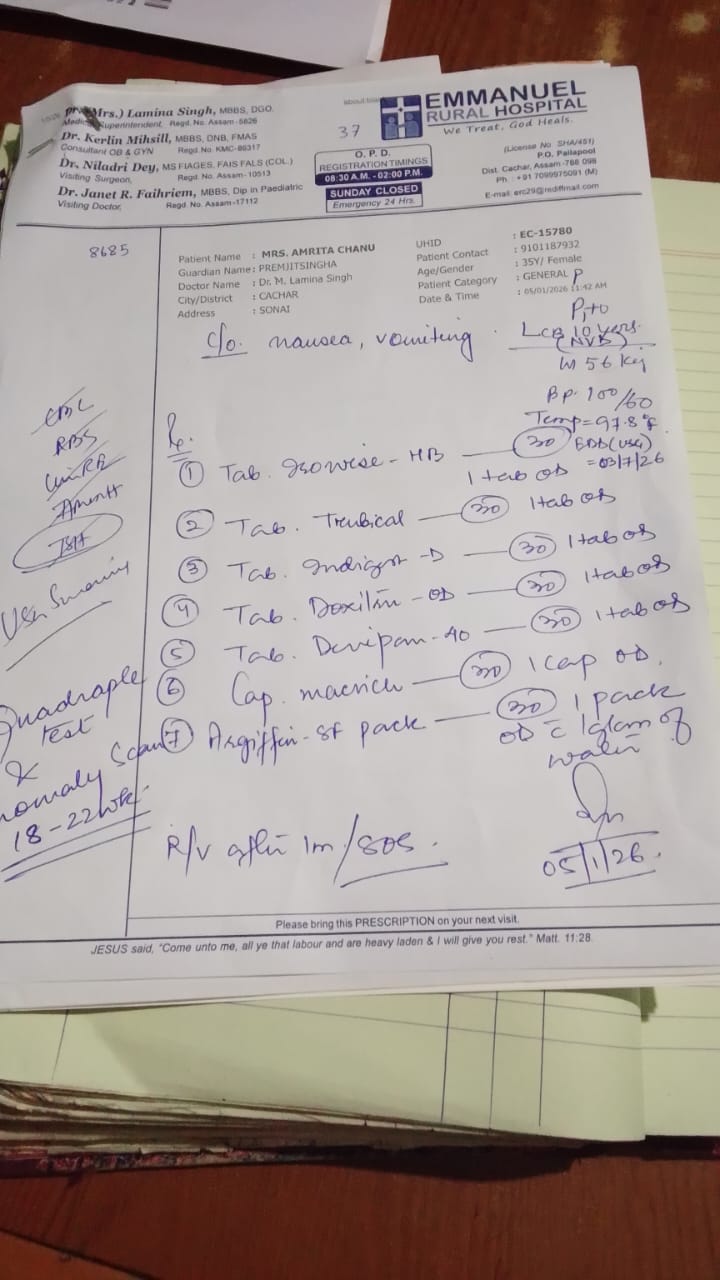 (Mrs.) Lamina Singh, MBBS, DGO.
Medical Superintendent, Regd. No. Assam-5626
Dr. Kerlin Mihsill, MBBS, DNB, FMAS
Consultant OB & GYN Regd. No-KMC-89317
Dr. Niladri Dey, MS FIAGES, FAIS FALS (COL.)
Visiting Surgeon, Regd. No. Assam-10513
Dr. Janet R. Faihriem, MBBS, Dip in Paediatric
Visiting Doctor, Regd. No. Assam-17112
37
O. P. D.
REGISTRATION TIMINGS
08:30 A.M. - 02:00 P.M.
SUNDAY CLOSED
Emergency 24 Hrs.
EMMANUEL
RURAL HOSPITAL
We Treat, God Heals.
(License No. SHA/451)
P.O. Pailapool
Dist. Cachar, Assam-788 098
Ph : +91 7099975091 (M)
E-mail: erc29@rediffmail.com
8685
Patient Name : MRS. AMRITA CHANU
Guardian Name : PREMJITSINGHA
Doctor Name : Dr. M. Lamina Singh
City/District : CACHAR
Address : SONAI
UHID : EC-15780
Patient Contact : 9101187932
Age/Gender : 35Y/ Female
Patient Category : GENERAL P
Date & Time : 05/01/2026 11:42 AM
P1+0
C/o. nausea, vomiting.
LCB 10 years.
(NVD)
Wt 56 kg
Bp. 100/60
Temp = 97.8°F
EDD (USG)
= 03/7/26
CBC
RBS
Urine RE
TSH
USG
Quadraple
test
&
Anomaly Scan
18-22 wk
Rx.
① Tab. - HB — 30 1 tab OD
② Tab. — 30 1 tab OD
③ Tab. - D — 30 1 tab OD
④ Tab. Doxilin - OD — 30 1 tab OD
⑤ Tab. - 40 — 30 1 tab OD
⑥ Cap. — 30 1 cap OD.
⑦ - SF pack — 30 1 pack
OD c̄ 1 glass of
water
R/v after 1m/SOS.
05/1/26.
Please bring this PRESCRIPTION on your next visit.
JESUS said, "Come unto me, all ye that labour and are heavy laden & I will give you rest." Matt. 11:28.